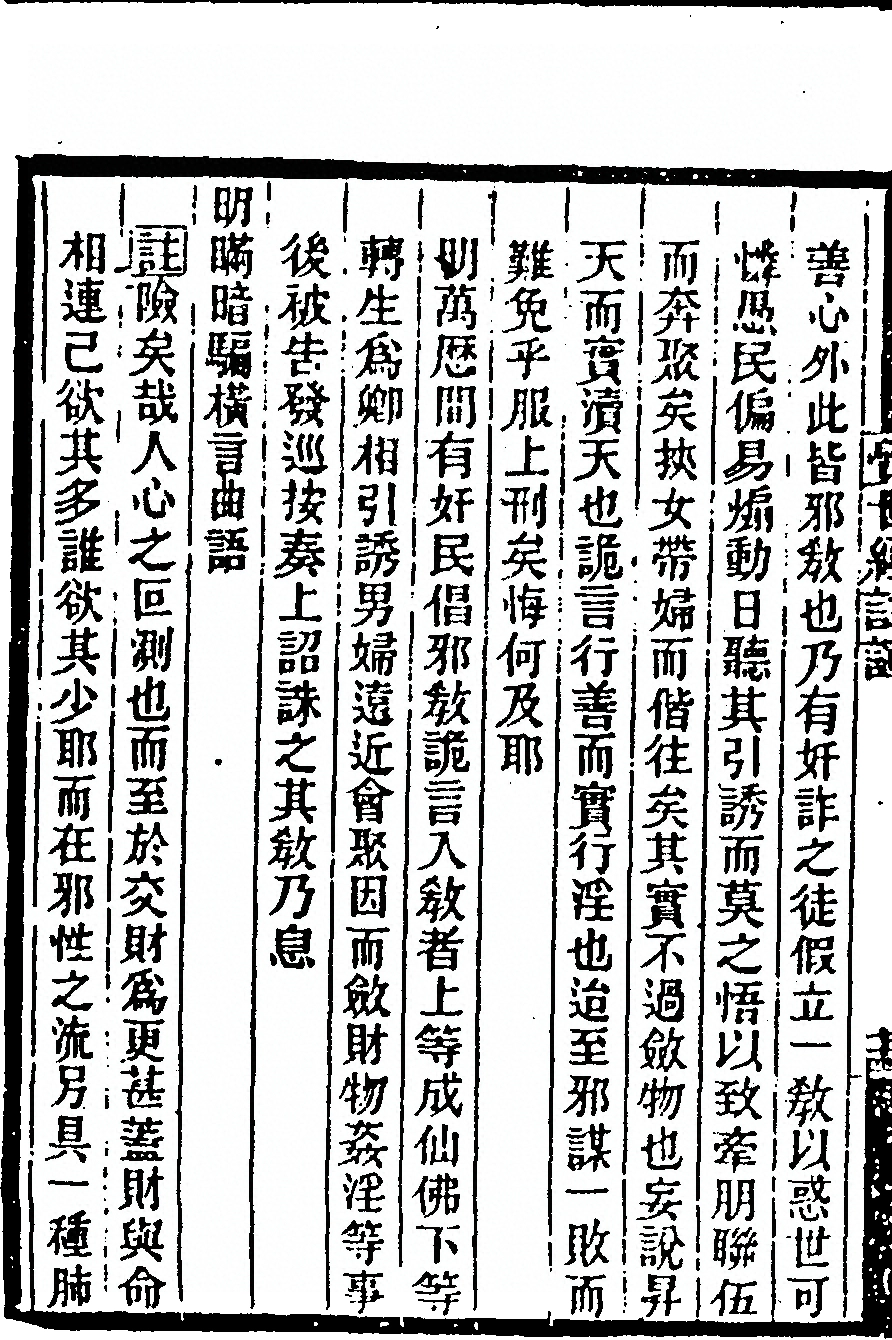 善心外此皆邪敎也乃有奸詐之徒假立一敎以惑世可
憐愚民偏易煽動日聽其引誘而莫之悟以致牽朋聯伍
而奔聚矣挾女帶婦而偕往矣其實不過斂物也妄說昇
天而實瀆天也詭言行善而實行淫也迨至邪謀一敗而
難免乎服上刑矣悔何及耶
明萬歷間有奸民倡邪敎詭言入敎者上等成仙佛下等
轉生爲卿相引誘男婦遠近會聚因而斂財物姦淫等事
後被告發巡按奏上詔誅之其敎乃息
明瞞暗騙橫言曲語
註險矣哉人心之叵測也而至於交財爲更甚蓋財與命
相連己欲其多誰欲其少耶而在邪性之流另具一種肺